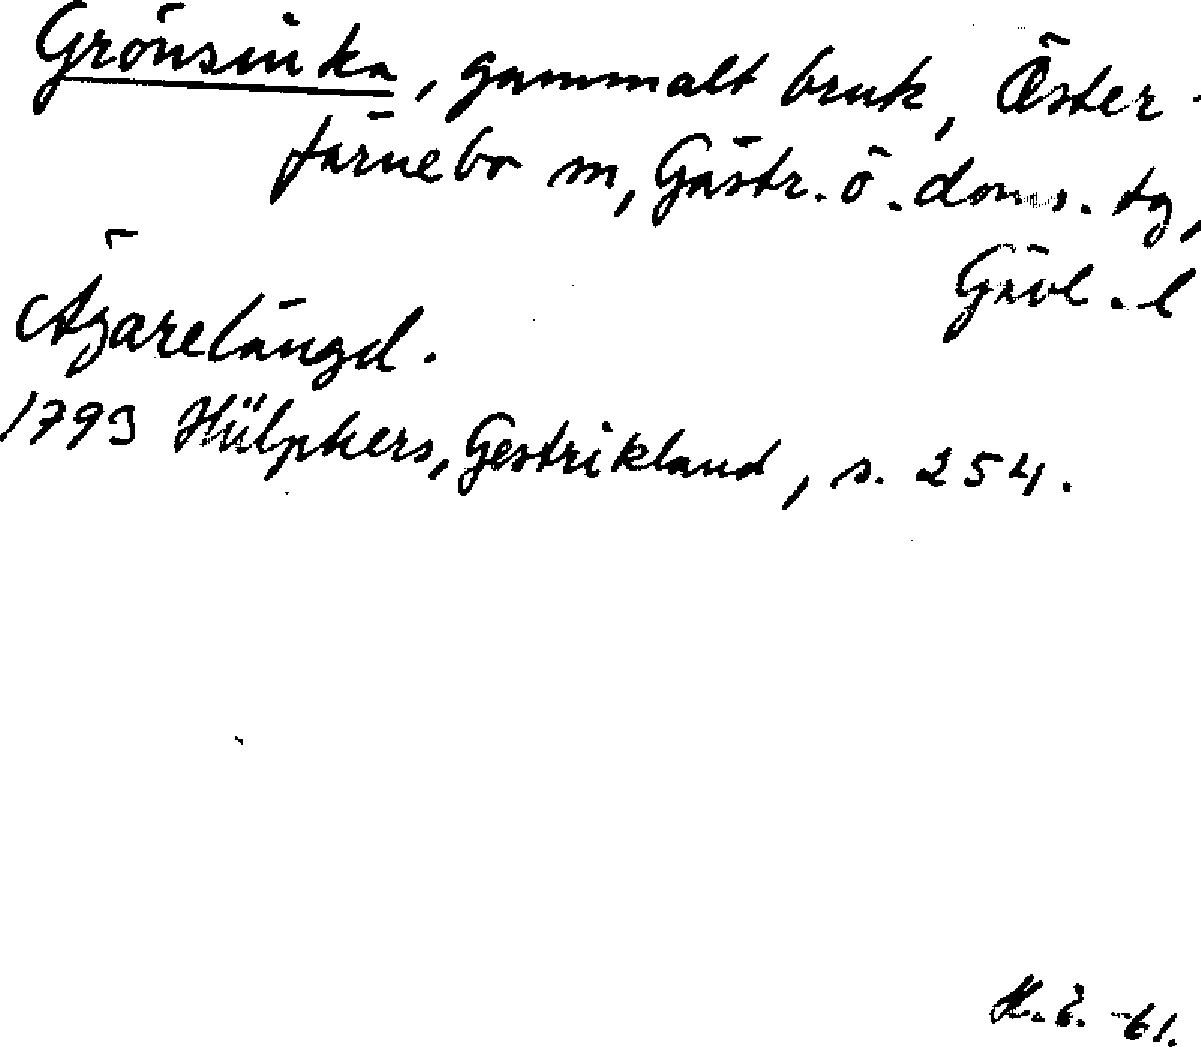 Grönsinka, gammalt bruk, Öster-
färnebo sn, Gästr. ö. doms. tg,
Gävl. l
Ägarelängd.
1793 Hülphers, Gestrikland, s. 254.
-61.